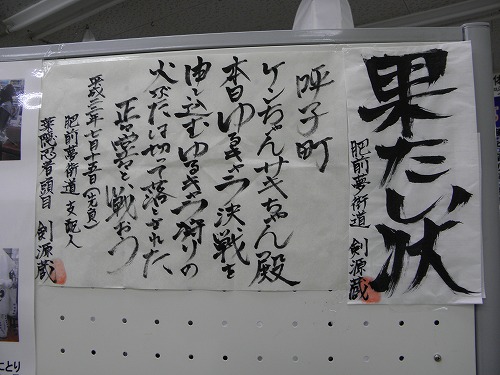 果たし状
肥前夢街道 剣源蔵
呼子町
ケンちゃんサキちゃん殿
本日ゆるキャラ決戦を
申し込むゆるキャラ狩りの
火ぶたは切って落とされた
正々堂々戦おう
平成二三年七月十五日
肥前夢街道 支配人
葉隠忍者頭目 剣源蔵
ことり